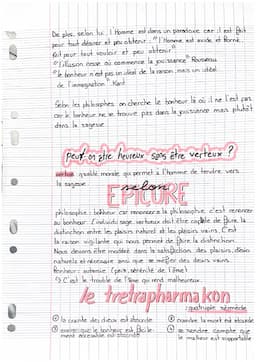 De plus, selon lui, l'Homme est dans un paradoxe car il est fait
pour tout désirer et peu obtenir : "l'Homme est avide et borné
fait pour tout vouloir et peu obtenir"
"l'illusion cesse où commence la jouissance" Rousseau
"le bonheur n'est pas un idéal de la raison mais un idéal
de l'imagination" Kant
Selon les philosophes on cherche le bonheur là où il ne l'est pas
car le bonheur ne se trouve pas dans la jouissance mais plutôt
dans la sagesse
Peut-on être heureux sans être vertueux ?
vertus qualité morale qui permet à l'Homme de tendre vers
la sagesse
selon
EPICURE
philosophie : bonheur car renoncer à la philosophie, c'est renoncer
au bonheur. L'individu sage, vertueux doit être capable de faire la
distinction entre les plaisirs naturels et les plaisirs vains. C'est
la raison vigilante qui nous permet de faire la distinction.
Nous devons être modéré dans la satisfaction des plaisirs, désirs
naturels et nécessaire ainsi que se méfier des désirs vains
Bonheur : ataraxie (paix, sérénité de l'âme)
C'est le trouble de l'âme qui rend malheureux.
le tretrapharmakon
quadruple remède
① la crainte des dieux est absurde
② craindre la mort est absurde
③ le bonheur est facile
ment accessible
④ se rendre compte que
le malheur est supportable